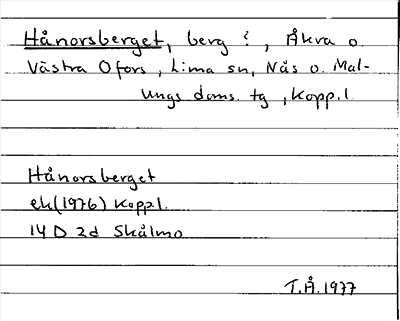 Hånorsberget, berg i, Åkra o.
Västra Ofors, Lima sn, Nås o. Mal-
ungs doms. tg, Kopp.l.
Hånorsberget
ek(1976) Kopp.l.
14 D 2d Skålmo
T.Å. 1977